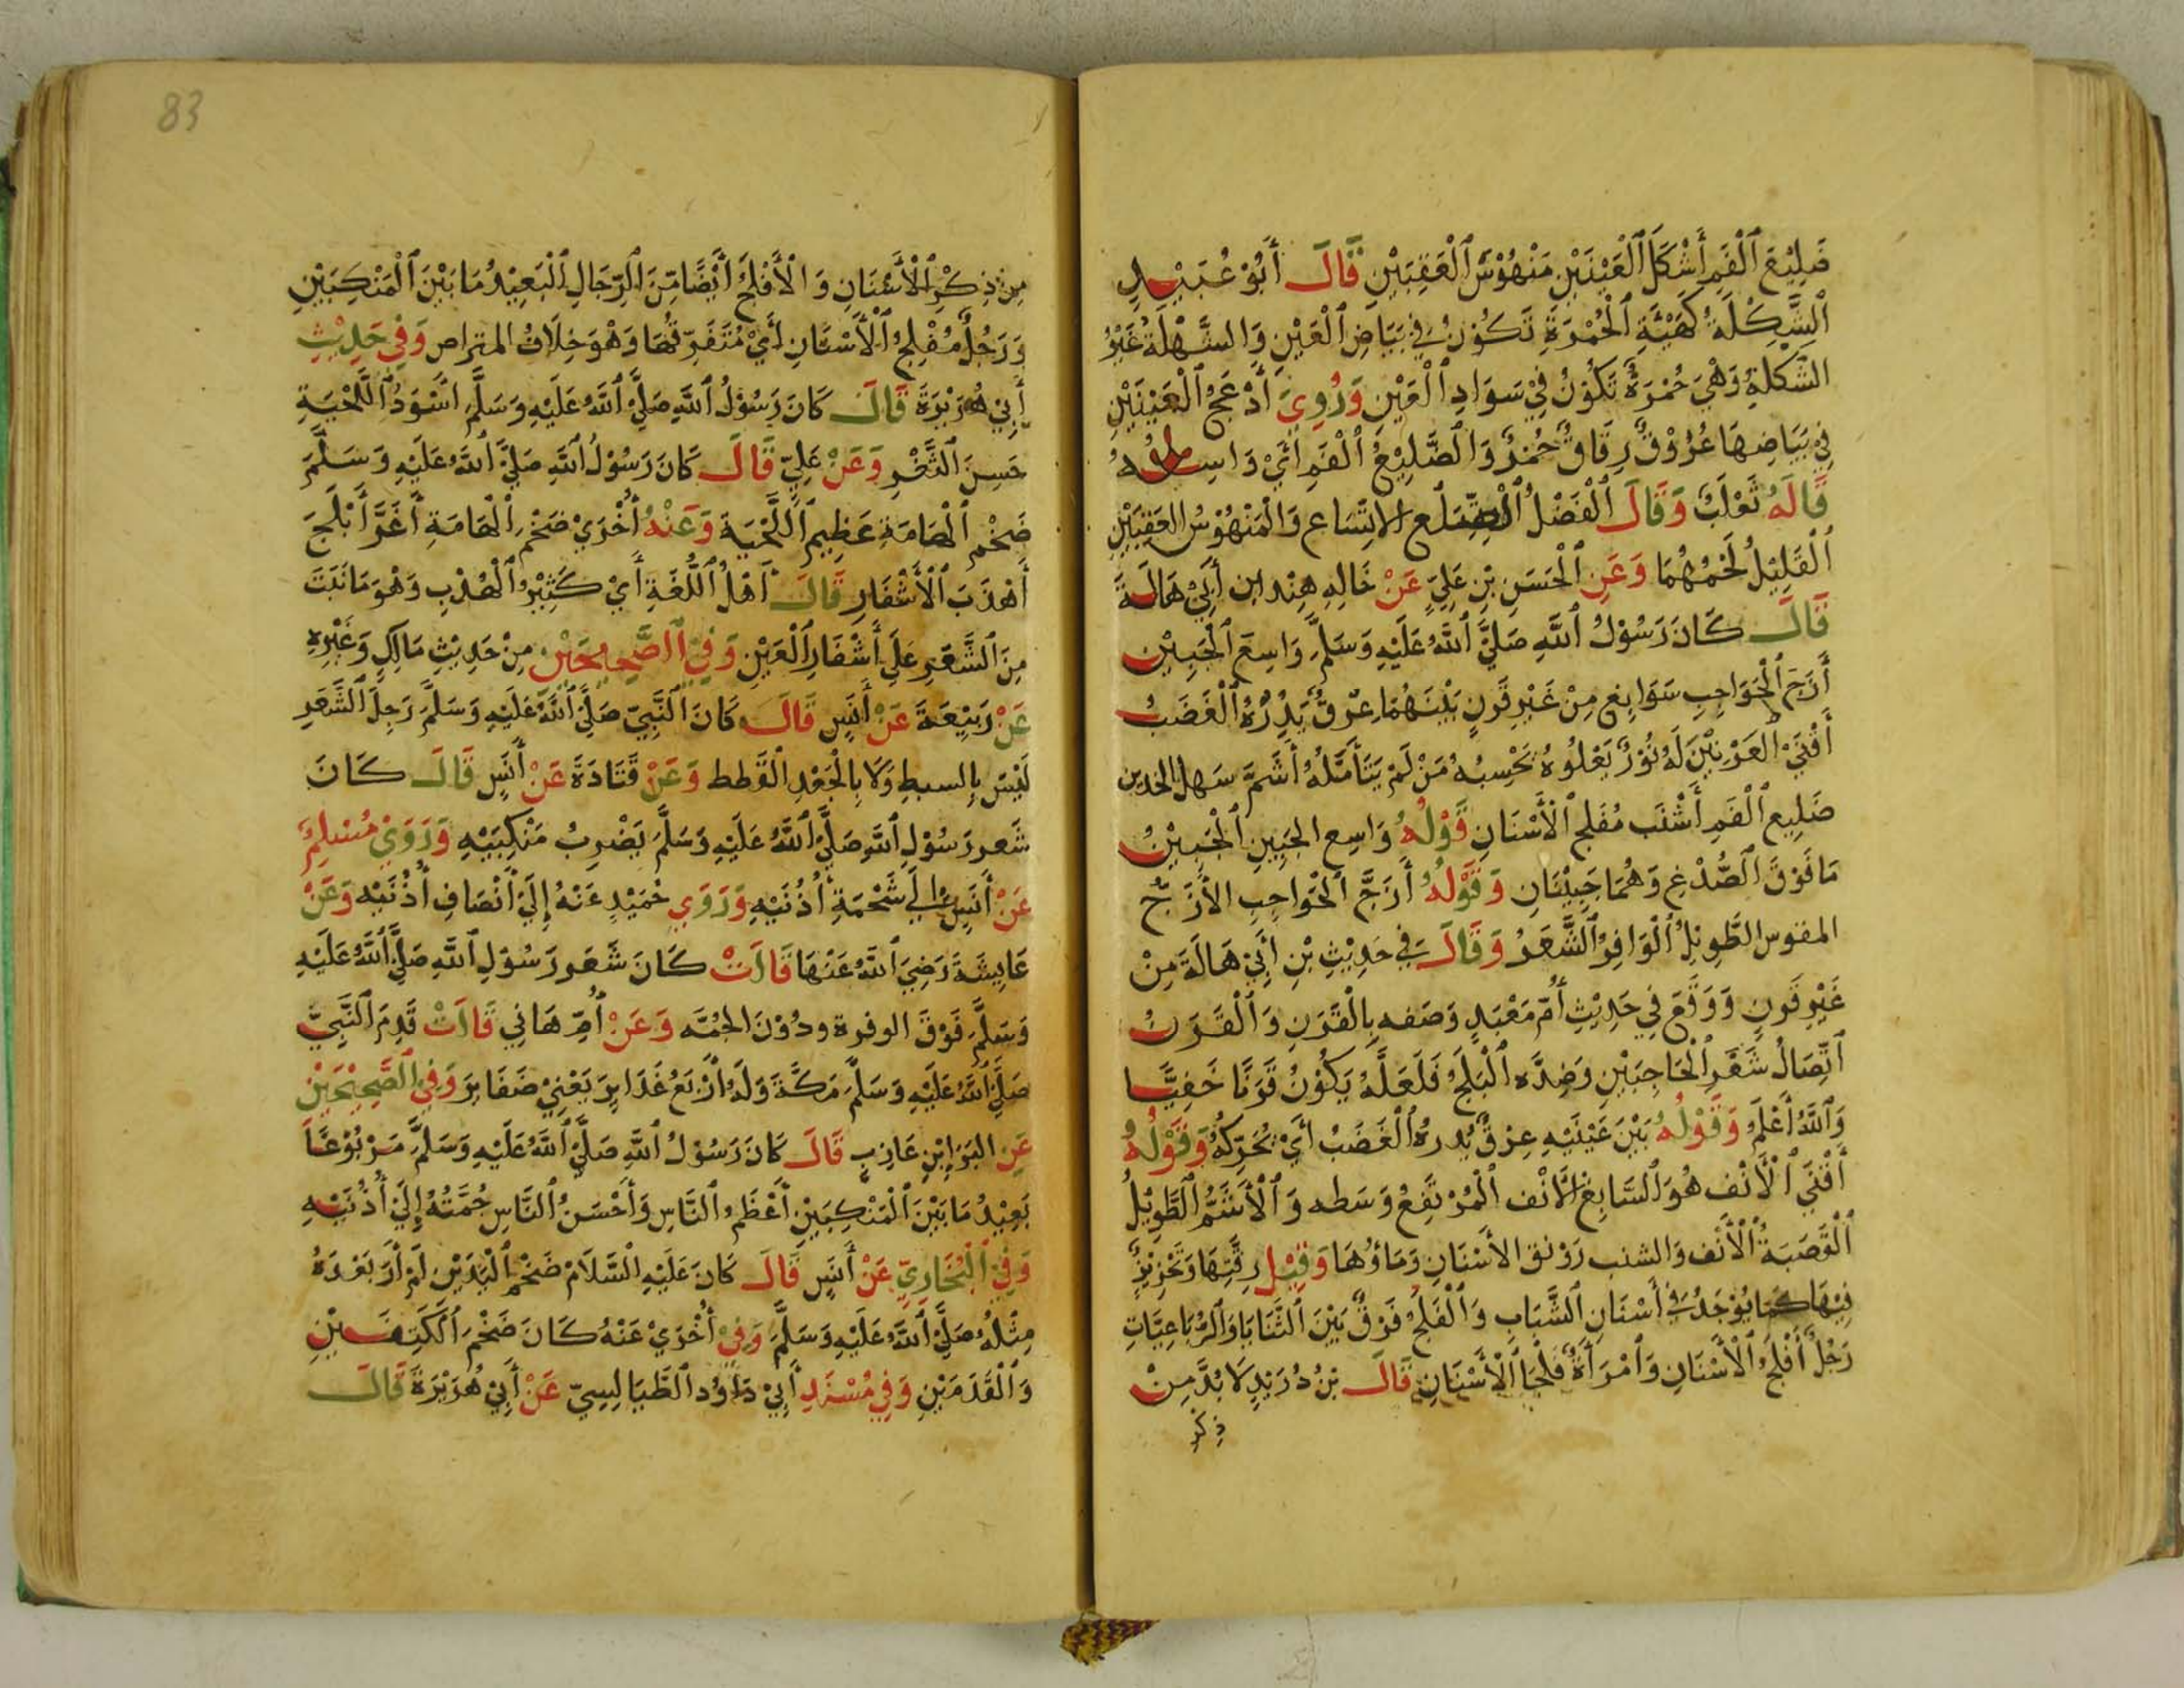 ضَلِيْعَ ٱلْفَمِ أَشْكَلَ ٱلْعَيْنَيْنِ مَنْهُوْسَ ٱلْعَقِبَيْنِ قَالَ أَبُوْ عُبَيْدٍ
ٱلشُّكْلَةُ كَهَيْئَةِ ٱلْحُمْرَةِ تَكُوْنُ فِي بَيَاضِ ٱلْعَيْنِ وَالشُّهْلَةُ غَيْرُ
الشكلةِ وَهْيَ حُمْرَةٌ تَكُوْنُ فِيْ سَوَادِ ٱلْعَيْنِ وَرُوِيَ أَدْعَجُ ٱلْعَيْنَيْنِ
فِي بَيَاضِهَا عُرُوْقٌ رِقَاقٌ حُمْرٌ وَالضَّلِيْعُ ٱلْفَمِ أَيْ وَاسِعُهُ
قَالَهُ ثَعْلَبٌ وَقَالَ ٱلْفَضْلُ الاتِّسَاع وَالْمَنْهُوْسُ العَقِبَيْنِ
ٱلْقَلِيْلُ لَحْمُهُمَا وَعَنِ ٱلْحَسَنِ بْنِ عَلِيٍّ عَنْ خَالِهِ هِنْد ابن أَبِيْ هَالَةَ
قَالَ كَانَ رَسُوْلُ ٱللهِ صَلَّيَ ٱللهُ عَلَيْهِ وَسَلَّمَ وَاسِعَ ٱلْجَبِيْنِ
أَزَجَّ ٱلْحَوَاجِبِ سَوَابِغ مِنْ غَيْرِ قَرَنٍ بَيْنَهُمَا عِرْقٌ يُدِرُّهُ ٱلْغَضَبُ
أَقْنَيَ العَرْنِيْنَ لَهُ نُوْرٌ يَعْلُوهُ يَحْسِبُهُ مَنْ لَمْ يَتَأَمَّلْهُ أَشَمَّ سَهل الخدين
ضَلِيع ٱلْفَمِ أَشْنَب مُفَلج ٱلْأَسْنَانِ قَوْلُهُ وَاسِع الجَبِيْنِ ٱلْجَبِيْنُ
مَا فَوْقَ ٱلصُّدْغِ وَهُمَا جَبِيْنَانِ وَقَوْلُهُ أَزَجَّ ٱلْحَوَاجِبِ الأَزَجُّ
المقوس الطَّوِيْلُ ٱلْوَافِرُ ٱلشَّعَرُ وَقَالَ فِي حَدِيْثِ بْنِ أَبِيْ هَالَةَ مِنْ
غَيْرِ قَرَنٍ وَوَقَعَ فِي حَدِيْثِ أُمّ مَعْبَدٍ وَصَفه بِالْقَرَنِ وَٱلْقَرَنُ
ٱتِّصَالُ شَعْرِ ٱلْحَاجِبَيْنِ وَضِدَّه ٱلْبَلَجُ فَلَعَلَّهُ يَكُوْنُ قَرَنًا خَفِيًّا
وَٱللهُ أَعْلَمُ وَقَوْلُهُ بَيْنَ عَيْنَيْهِ عِرْقٌ يُدرهُ ٱلْغَضَبُ أَيْ يُحَرِّكهُ وَقَوْلُهُ
أَقْنَي ٱلْأَنْف هُوَ السَّابِغ الأَنْف ٱلْمُرْتَفِعُ وَسَطه وَٱلْأَشَمُّ ٱلطَّوِيْلُ
ٱلْقَصَبَةُ ٱلْأَنْف وَالشنب رَوْنق الأَسْنَانِ وَمَاؤُهَا وَقِيْلَ رِقَّتِهَا وَتَحْزِيْزٌ
فِيْهَا كَمَا يُوْجَدُ فِي أَسْنَانِ ٱلشَّبَابِ وَٱلْفَلَجُ فَرْقٌ بَيْنَ ٱلثَّنَايَا وَٱلرُّبَاعِيَّاتِ
رَجُلٌ أَفْلَجُ ٱلْأَسْنَانِ وَٱمْرَأَةٌ فَلْجَا ٱلْأَسْنَانِ قَالَ بْنُ دُرَيْدٍ لَا بُدَّ مِنْ
ذِكْر
83
مِنْ ذِكْرِ ٱلْأَسْنَانِ وَالْأَفْلَجُ أَيْضًا مِّنَ ٱلرِّجَالِ ٱلْبَعِيْدُ مَا بَيْنَ ٱلْمَنْكِبَيْنِ
وَرَجُلٌ مُفْلِجُ ٱلْأَسْنَانِ أَيْ مُتَفَرِّقُهَا وَهْوَ خِلَافُ المتراص وَفِي حَدِيْثِ
أَبِيْ هُرَيْرَةَ قَالَ كَانَ رَسُوْلُ ٱللهِ صَلَّيَ ٱللهُ عَلَيْهِ وَسَلَّمَ اَسْوَدُ ٱللَّحْيَةِ
حَسِنَ ٱلثَّغْرِ وَعَنْ عَلِيّ قَالَ كَانَ رَسُوْلُ ٱللهِ صَلَّيَ ٱللهُ عَلَيْهِ وَسَلَّمَ
ضَخْم ٱلْهَامَةِ عَظِيم ٱللَّحْيَة وَعَنْهُ أُخْرَيْ ضَخْم ٱلْهَامَةِ أَغَرَّ أَبْلَجَ
أَهْدَبَ ٱلْأَشْفَارِ قَالَ أَهْلُ ٱللُّغَةِ أَيْ كَثِيْرُ ٱلْهُدْبِ وَهْوَ مَا نَبَتَ
مِنَ ٱلشَّعْرِ عَلَي أَشْفَارِ ٱلْعَيْنِ وَفِيْ ٱلصَّحِيحَيْنِ مِنْ حَدِيْثِ مَالِكٍ وَغَيْرِهِ
عَنْ رَبِيْعَةَ عَنْ أَنَسٍ قَالَ كَانَ ٱلنَّبِيّ صَلَّيَ ٱللهُ عَلَيْهِ وَسَلَّمَ رَجِلَ ٱلشَّعَرِ
لَيْسَ بِالسبطِ وَلَا بِالْجَعْدِ الْقَطط وَعَنْ قَتَادَةَ عَنْ أَنَسٍ قَالَ كَانَ
شَعر رَسُوْلِ ٱللهِ صَلَّيَ ٱللهُ عَلَيْهِ وَسَلَّمَ يَضْرِبُ مَنْكِبَيْهِ وَرَوَيْ مُسْلِمٌ
عَنْ أَنَسٍ إِلَي شَحْمَةِ أُذُنَيْهِ وَرَوَي حُمَيْدٍ عَنْهُ إِلَيْ أَنْصَافِ أُذُنَيْهِ وَعَنْ
عَايِشَةَ رَضِيَ ٱللهُ عَنْهَا قَالَتْ كَانَ شَعَر رَسُوْلِ ٱللهِ صَلَّيَ ٱللهُ عَلَيْهِ
وَسَلَّمَ فَوْقَ الوفرة ودُوْنَ الجُمَّه وَعَنْ أُمّ هَانِي قَالَتْ قَدِمَ ٱلنَّبِيَّ
صَلَّيَ ٱللهُ عَلَيْهِ وَسَلَّمَ مَكَّةَ وَلَهُ أَرْبَعُ غَدَايِرَ يَعْنِيْ ضَفَايِرَ وَفِي ٱلصَّحِيْحَيْنِ
عَنِ البَرَا بْنِ عَازِبٍ قَالَ كَانَ رَسُوْلُ ٱللهِ صَلَّيَ ٱللهُ عَلَيْهِ وَسَلَّمَ مَرْبُوْعًا
بَعِيْدُ مَا بَيْنَ ٱلْمَنْكِبَيْنِ أَعْظَمُ ٱلنَّاسِ وَأَحْسَنُ ٱلنَّاسِ جُمَّتُهُ إِلَيْ أُذُنَيْهِ
وَفِيْ ٱلْبُخَارِيِّ عَنْ أَنَسٍ قَالَ كَانَ عَلَيْهِ ٱلسَّلَامُ ضَخْمَ ٱلْيَدَيْنِ لَمْ أَرَ بَعْدَهُ
مِثْلَهُ صَلَّيَ ٱللهُ عَلَيْهِ وَسَلَّمَ وَفِيْ أُخْرَيْ عَنْهُ كَانَ ضَخْمَ ٱلْكَتِفَيْنِ
وَٱلْقَدَمَيْنِ وَفِي مُسْنَدِ أَبِيْ دَاوُد ٱلطَّيَالِسِيّ عَنْ أَبِيْ هُرَيْرَةَ قَالَ